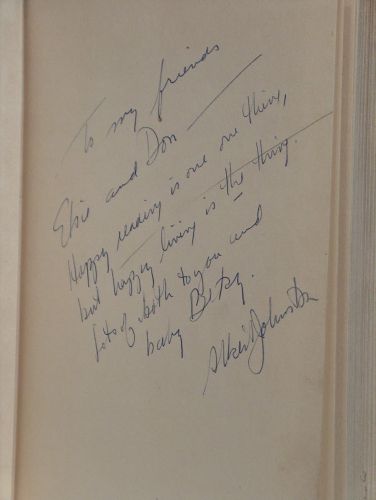 To my friends
Elsie and Don —
Happy reading is one thing,
but happy living is the thing.
Lots of both to you and
baby Betsy.
Johnston